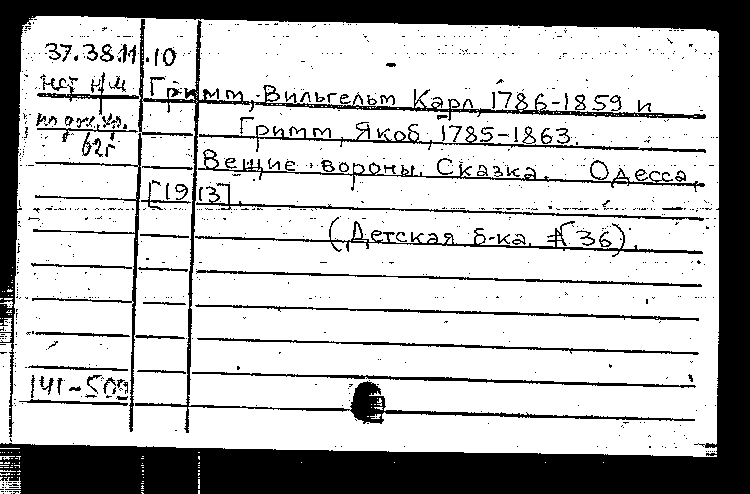 37.38.11.10
нет н/м
по док.хр.
62г
Гримм, Вильгельм Карл, 1786-1859 и
Гримм, Якоб, 1785-1863.
Вещие вороны. Сказка. Одесса,
[1913].
(Детская б-ка. № 36).
141-509